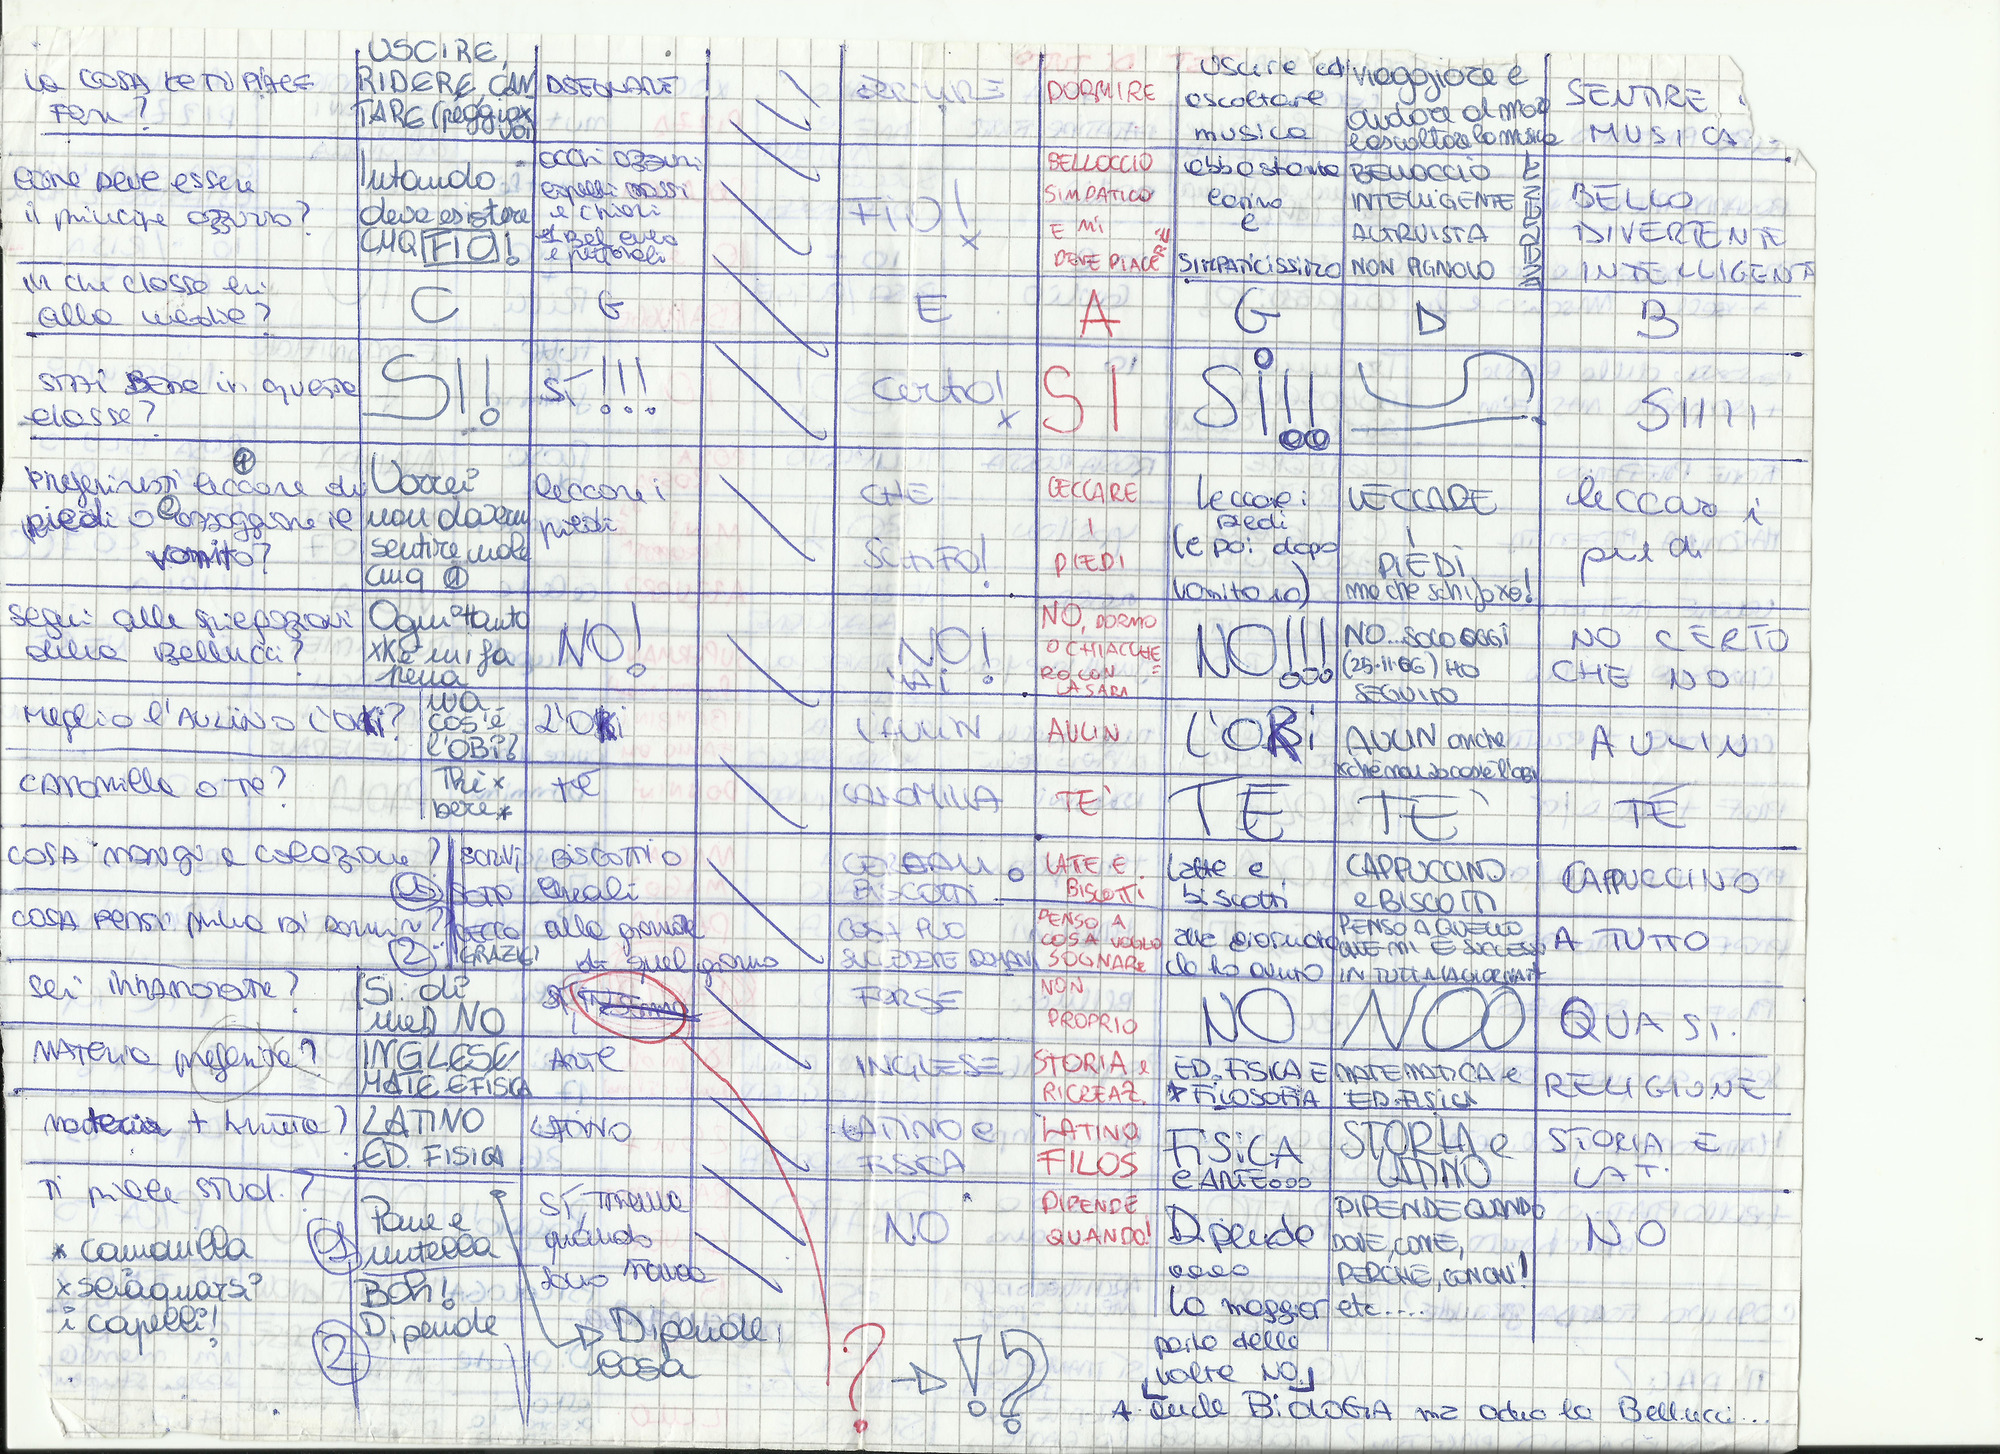 LA COSA KE TI PIACE
FARE?
USCIRE,
RIDERE, CAN
TARE (peggio x
voi)
DISEGNARE
DORMIRE
uscire ed
ascoltare
musica
viaggiare e
andare al mare
e ascoltare la musica
SENTIRE
MUSICA
COME DEVE ESSERE
il principe azzurro?
Intanto
deve esistere
CMQ FIO!
occhi azzurri
capelli mossi
e chiari
e pettorali
FIO!
x
BELLOCCIO
SIMPATICO
E MI
DEVE PIACERE
abbastanza
carino
e
SIMPATICISSIMO
BELLOCCIO E
INTELLIGENTE
ALTRUISTA
NON PIGNOLO
BELLO
DIVERTENTE
INTELLIGENTE
in che classe eri
alle medie?
C
G
E
A
G
D
B
STAI BENE in questa
classe?
SI!!
SÍ!!!
certo!
x
SI
Sì!!!
SI
SIIII
preferiresti leccare dei
piedi o assaggiare il
vomito?
1
2
Vorrei
non dovermi
sentire male
cmq 1
leccare i
piedi
CHE
SCHIFO!
LECCARE
I
PIEDI
leccare i
piedi
(e poi dopo
vomito io)
LECCARE
I
PIEDI
ma che schifoxo!
leccare i
piedi
segui alle spiegazioni
della Bellucci?
Ogni tanto
xKè mi fa
pena
NO!
NO!
MAI
NO, DORMO
O CHIACCHE
RO CON
LA SARA
NO!!!
NO... SOLO OGGI
(25-11-06) HO
SEGUITO
NO CERTO
CHE NO
Meglio l'AULIN O l'OKi?
ma
cos'è
l'OBi?
L'OKi
l'AULIN
AULIN
L'OKi
AULIN anche
xchè non so cos'è l'OBi
AULIN
CAMOMILLA O TE?
Thè x
bere *
tè
CAMOMILLA
TE'
TE
TE'
TÉ
COSA MANGI A COLAZIONE?
1
SCRIVI
SOTTO
BISCOTTI O
cereali
CEREALI o
BISCOTTI
LATE E
BISCOTTI
latte e
biscotti
CAPPUCCINO
e BISCOTTI
CAPPUCCINO
COSA PENSI PRIMA DI DORMIRE?
2
GRAZIE!
alla giornata
di quel giorno
COSA PUÒ
SUCCEDERE DOMANI
PENSO A
COSA VOGLIO
SOGNARE
alla giornata
che ho avuto
PENSO A QUELLO
CHE MI È SUCCESSO
IN TUTTA LA GIORNATA
A TUTTO
sei innamorata?
Si. di
me:D NO
FORSE
NON
PROPRIO
NO
NOO
QUASI.
MATERIA preferita?
INGLESE
MATE E FISICA
Arte
INGLESE
STORIA e
RICREAZ.
ED. FISICA E
* FILOSOFIA
MATEMATICA e
ED. FISICA
RELIGIONE
materia + brutta?
LATINO
ED. FISICA
LATINO
LATINO e
FISICA
LATINO
FILOS
FISICA
e ARTE...
STORIA e
LATINO
STORIA E
LAT.
Ti piace stud.?
1
Pane e
nutella
2
Boh!
Dipende
Dipende,
cosa
SÍ, tranne
quando
sono stanca
NO
DIPENDE
QUANDO!
Dipende
....
la maggior
parte delle
volte NO.
DIPENDE QUANDO
DOVE, COME,
PERCHÈ, CON CHI!
etc....
NO
* camomilla
x sciaquarsi
i capelli!
?
!?
* anche BIOLOGIA ma odio la Bellucci...